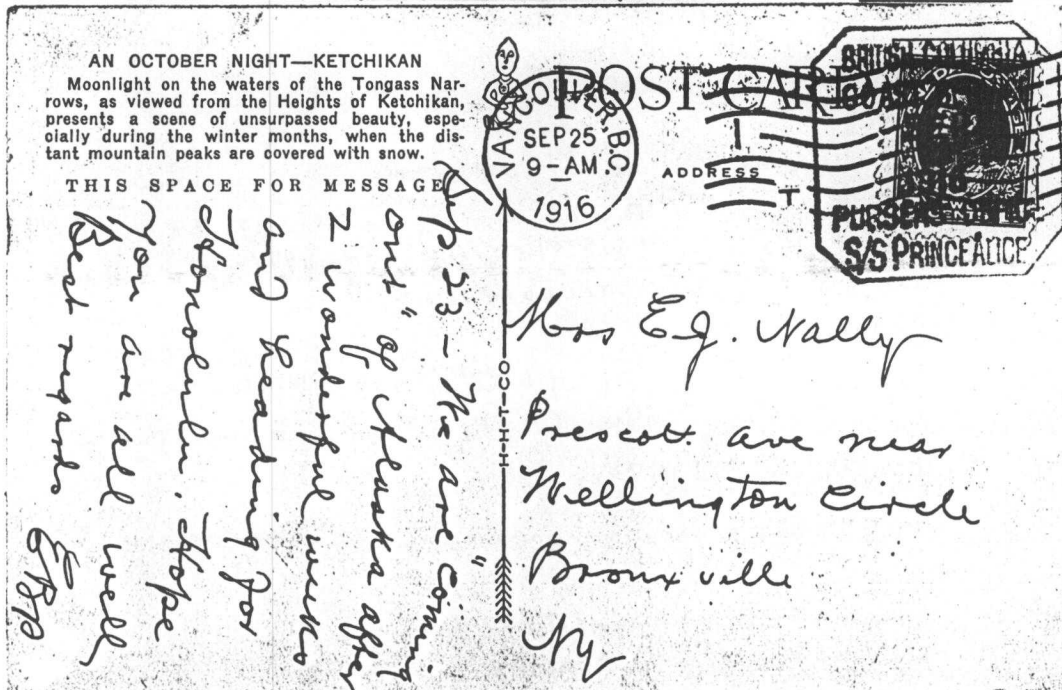 AN OCTOBER NIGHT—KETCHIKAN
Moonlight on the waters of the Tongass Nar-
rows, as viewed from the Heights of Ketchikan,
presents a scene of unsurpassed beauty, espe-
cially during the winter months, when the dis-
tant mountain peaks are covered with snow.
THIS SPACE FOR MESSAGE
Sep 23 - We are "coming
out" of Alaska after
2 wonderful weeks
and heading for
Honolulu. Hope
you are all well
Best regards
EBP
H-H-T-CO
POST CARD
ADDRESS
VANCOUVER, B.C.
SEP 25
9-AM.
1916
BRITISH COLUMBIA
COAST
PURSER
S/S PRINCE ALICE
Mrs E.J. Nally
Prescott ave near
Wellington Circle
Bronxville
NY